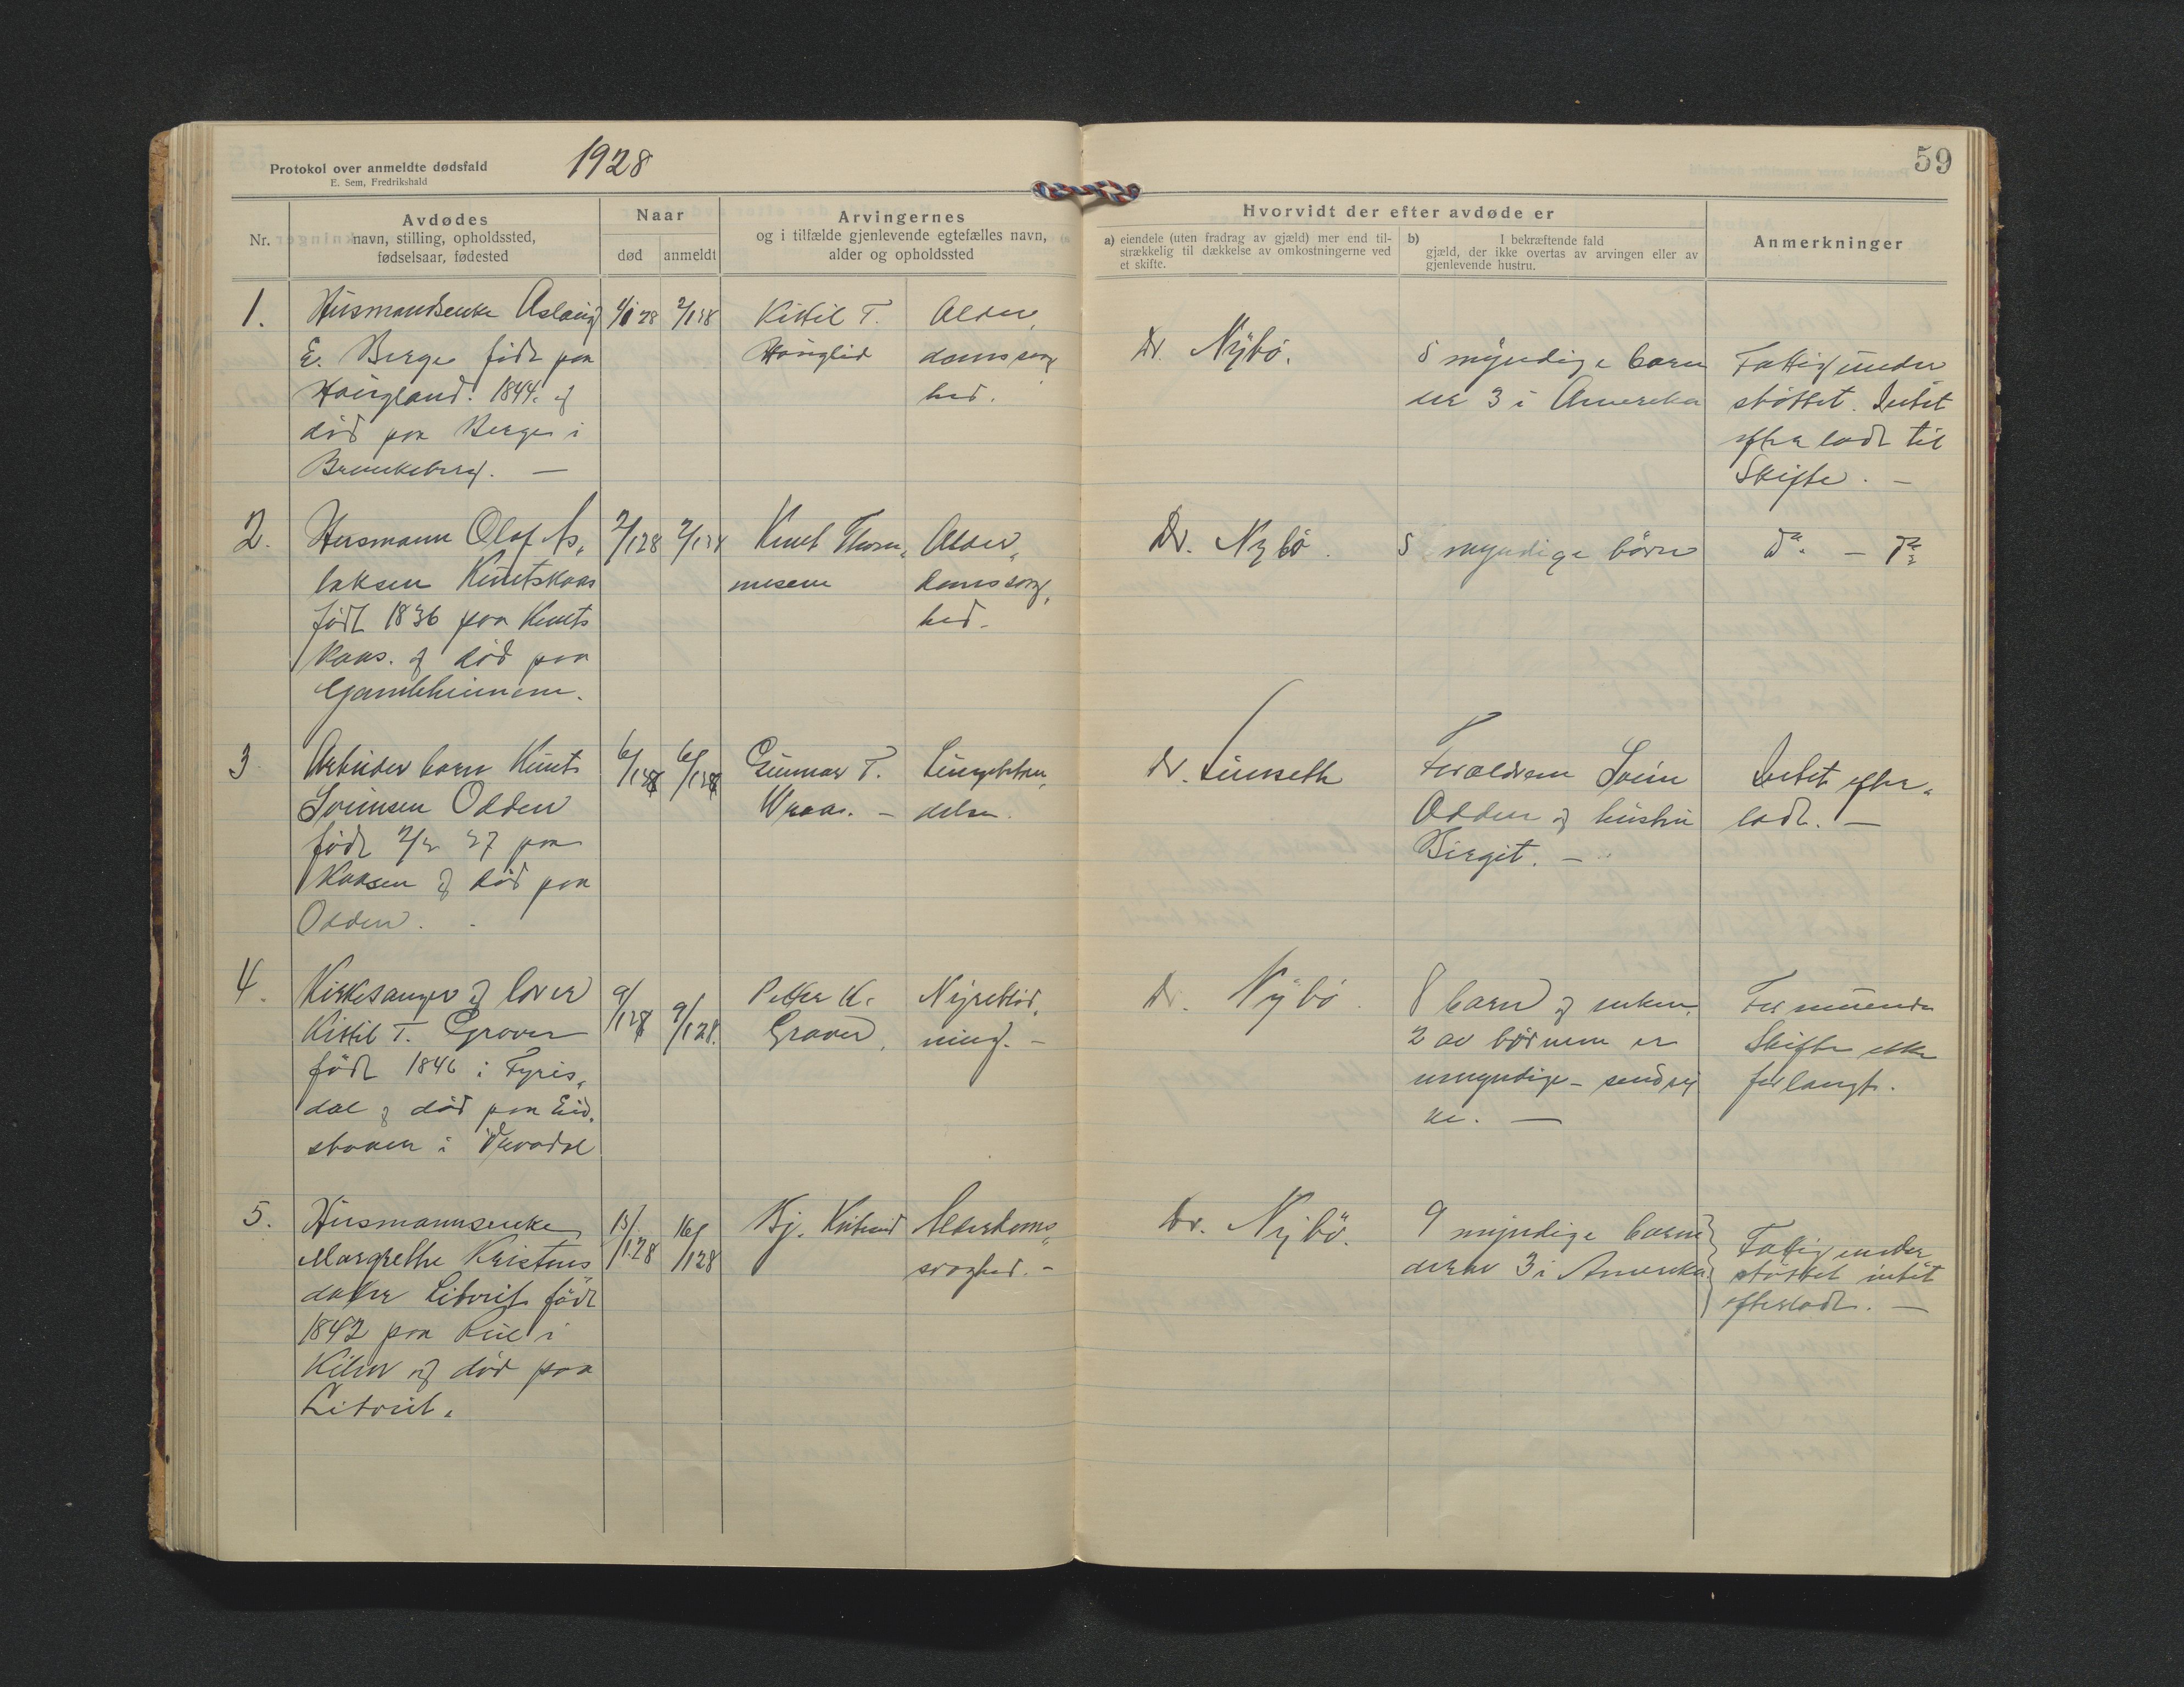 Protokol over anmeldte dødsfald
E. Sem, Fredrikshald
1928
59
Nr.
Avdødes
navn, stilling, opholdssted,
fødselsaar, fødested
Naar
død
anmeldt
Arvingernes
og i tilfælde gjenlevende egtefælles navn,
alder og opholdssted
Hvorvidt der efter avdøde er
a) eiendele (uten fradrag av gjæld) mer end til-
strækkelig til dækkelse av omkostningerne ved
et skifte.
b) I bekræftende fald
gjæld, der ikke overtas av arvingen eller av
gjenlevende hustru.
Anmerkninger
1.
Husmandsenke Aslaug
E. Berge født paa
Haugland 1844. og
død paa Berge i
Brunkeberg. —
1/1 28
2/1 28
Kittil T.
Hauglid
Alder„
doms svag
hed.
Dr. Nybö.
5 myndige barn
der 3 i Amerika
Fattigunder
støttet. Intet
efterladt til
Skifte. —
2.
Husmann Olaf As„
laksen Knutskaas
født 1836 paa Knuts
kaas. og død paa
Gamleheimen.
2/1 28
2/1 28
Knut Thom„
mesen
Alder„
domssvag„
hed.
Dr. Nybö.
5 myndige börn
Do. — Do
3
Arbeider barn Knut
Sveinsen Odden
født 27 paa
Kaasen og død paa
Odden.
6/1 28
6/1 28
Gunnar T.
Vraa. —
Lungebeten„
delse.
Dr. Linseth
Foraldrene Svein
Odden og hustru
Birgit. —
Intet efter„
ladt. —
4.
Kirkesanger og lærer
Kittil T. Graver
født 1846 i Fyris„
dal og død paa Eid„
stoven i Kviteseid
9/1 28
9/1 28.
Petter K.
Graver.
Nyreblød„
ning. —
Dr. Nybö.
8 barn og enken.
2 av børnene er
umyndige —
ke. —
Formuende
Skifte ikke
forlangt.
5.
Husmannsenke
Margrethe Kristens
datter Litveit født
1842 paa i
Kilen og død paa
Litveit.
15/1 28
16/1 28
Kj.
Alderdoms„
svaghed. —
Dr. Nybö.
9 myndige barn
derav 3 i Amerika
Fattigunder
støttet intet
efterladt. —